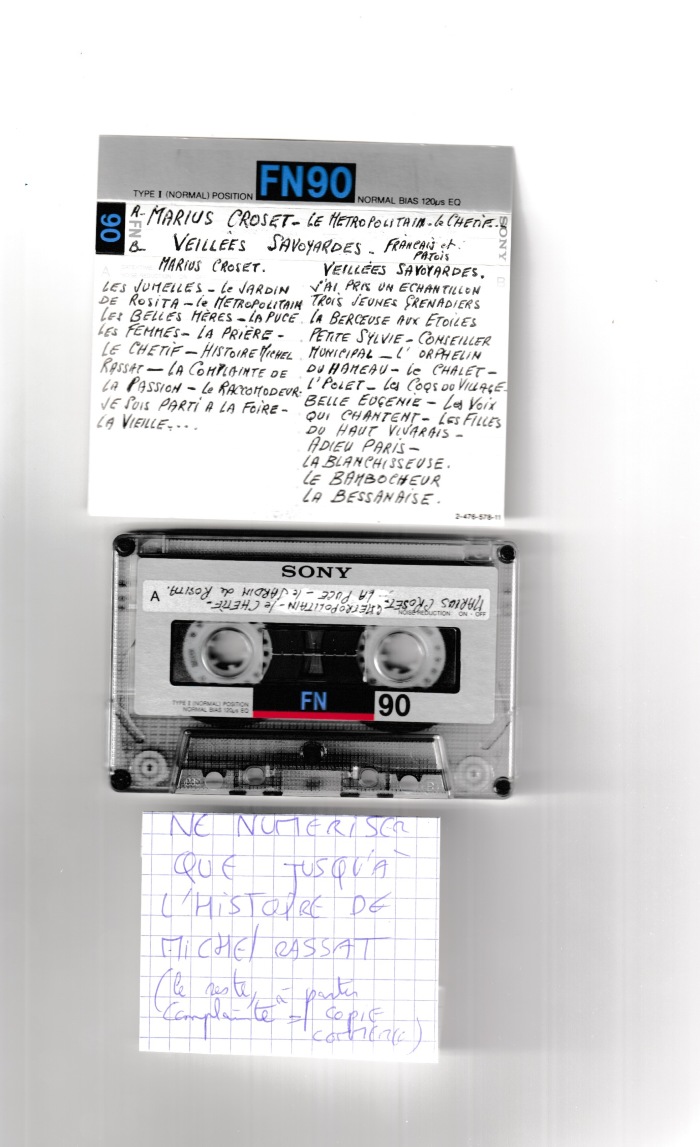 TYPE I (NORMAL) POSITION FN90 NORMAL BIAS 120µs EQ
90 FN
SONY
A- MARIUS CROSET - LE METROPOLITAIN - le CHETIF -
B- VEILLÉES SAVOYARDES - FRANÇAIS et PATOIS
MARIUS CROSET.
LES JUMELLES - le JARDIN
DE ROSITA - le METROPOLITAIN
Les BELLES MÈRES - LA PUCE
Les FEMMES - LA PRIÈRE -
LE CHETIF - HISTOIRE MICHEL
RASSAT - LA COMPLAINTE DE
LA PASSION - Le RACCOMODEUR -
JE SUIS PARTI A LA FOIRE -
LA VIEILLE....
VEILLÉES SAVOYARDES.
J'AI PRIS UN ECHANTILLON
TROIS JEUNES GRENADIERS
LA BERCEUSE AUX ETOILES
PETITE SYLVIE - CONSEILLER
MUNICIPAL - L'ORPHELIN
DU HAMEAU - Le CHALET -
L'POLET - Les COQS DU VILLAGE -
BELLE EUGENIE - Les VOIX
QUI CHANTENT - Les FILLES
DU HAUT VIVARAIS -
ADIEU PARIS -
LA BLANCHISSEUSE.
LE BAMBOCHEUR
LA BESSANAISE.
2-476-578-11
SONY
A
MARIUS CROSET - METROPOLITAIN - le CHETIF -
LA PUCE - le JARDIN de ROSITA.
NOISE REDUCTION ON · OFF
TYPE I (NORMAL) POSITION
NORMAL BIAS 120µs EQ
FN 90
NE NUMERISER
QUE JUSQU'À
L'HISTOIRE DE
MICHEL RASSAT
(le reste, à partir
Complainte = COPIE